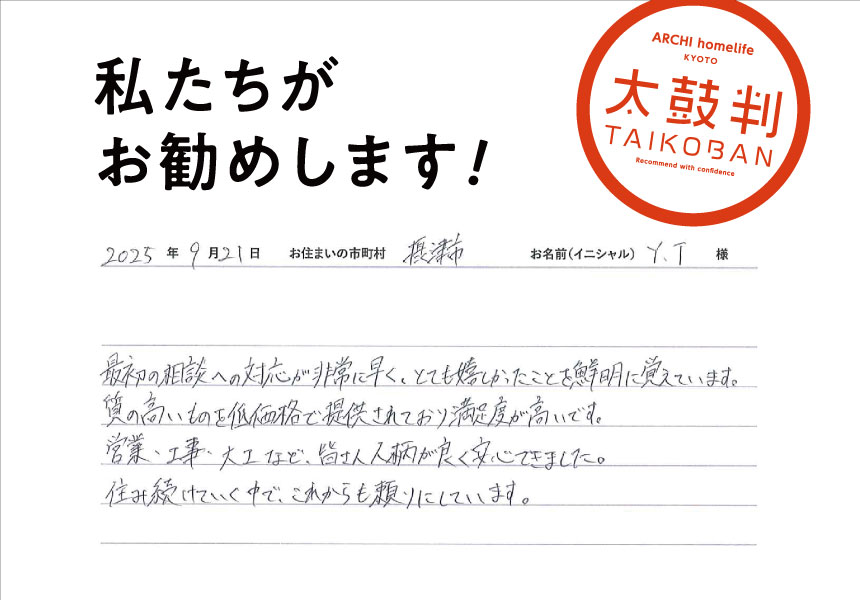 私たちが
お勧めします!
ARCHI homelife
KYOTO
太鼓判
TAIKOBAN
Recommend with confidence
2025 年 9 月 21 日 お住まいの市町村 摂津市 お名前(イニシャル) Y.T 様
最初の相談への対応が非常に早く、とても嬉しかったことを鮮明に覚えています。
質の高いものを低価格で提供されており満足度が高いです。
営業・工事・大工など、皆さん人柄が良く安心できました。
住み続けていく中で、これからも頼りにしています。